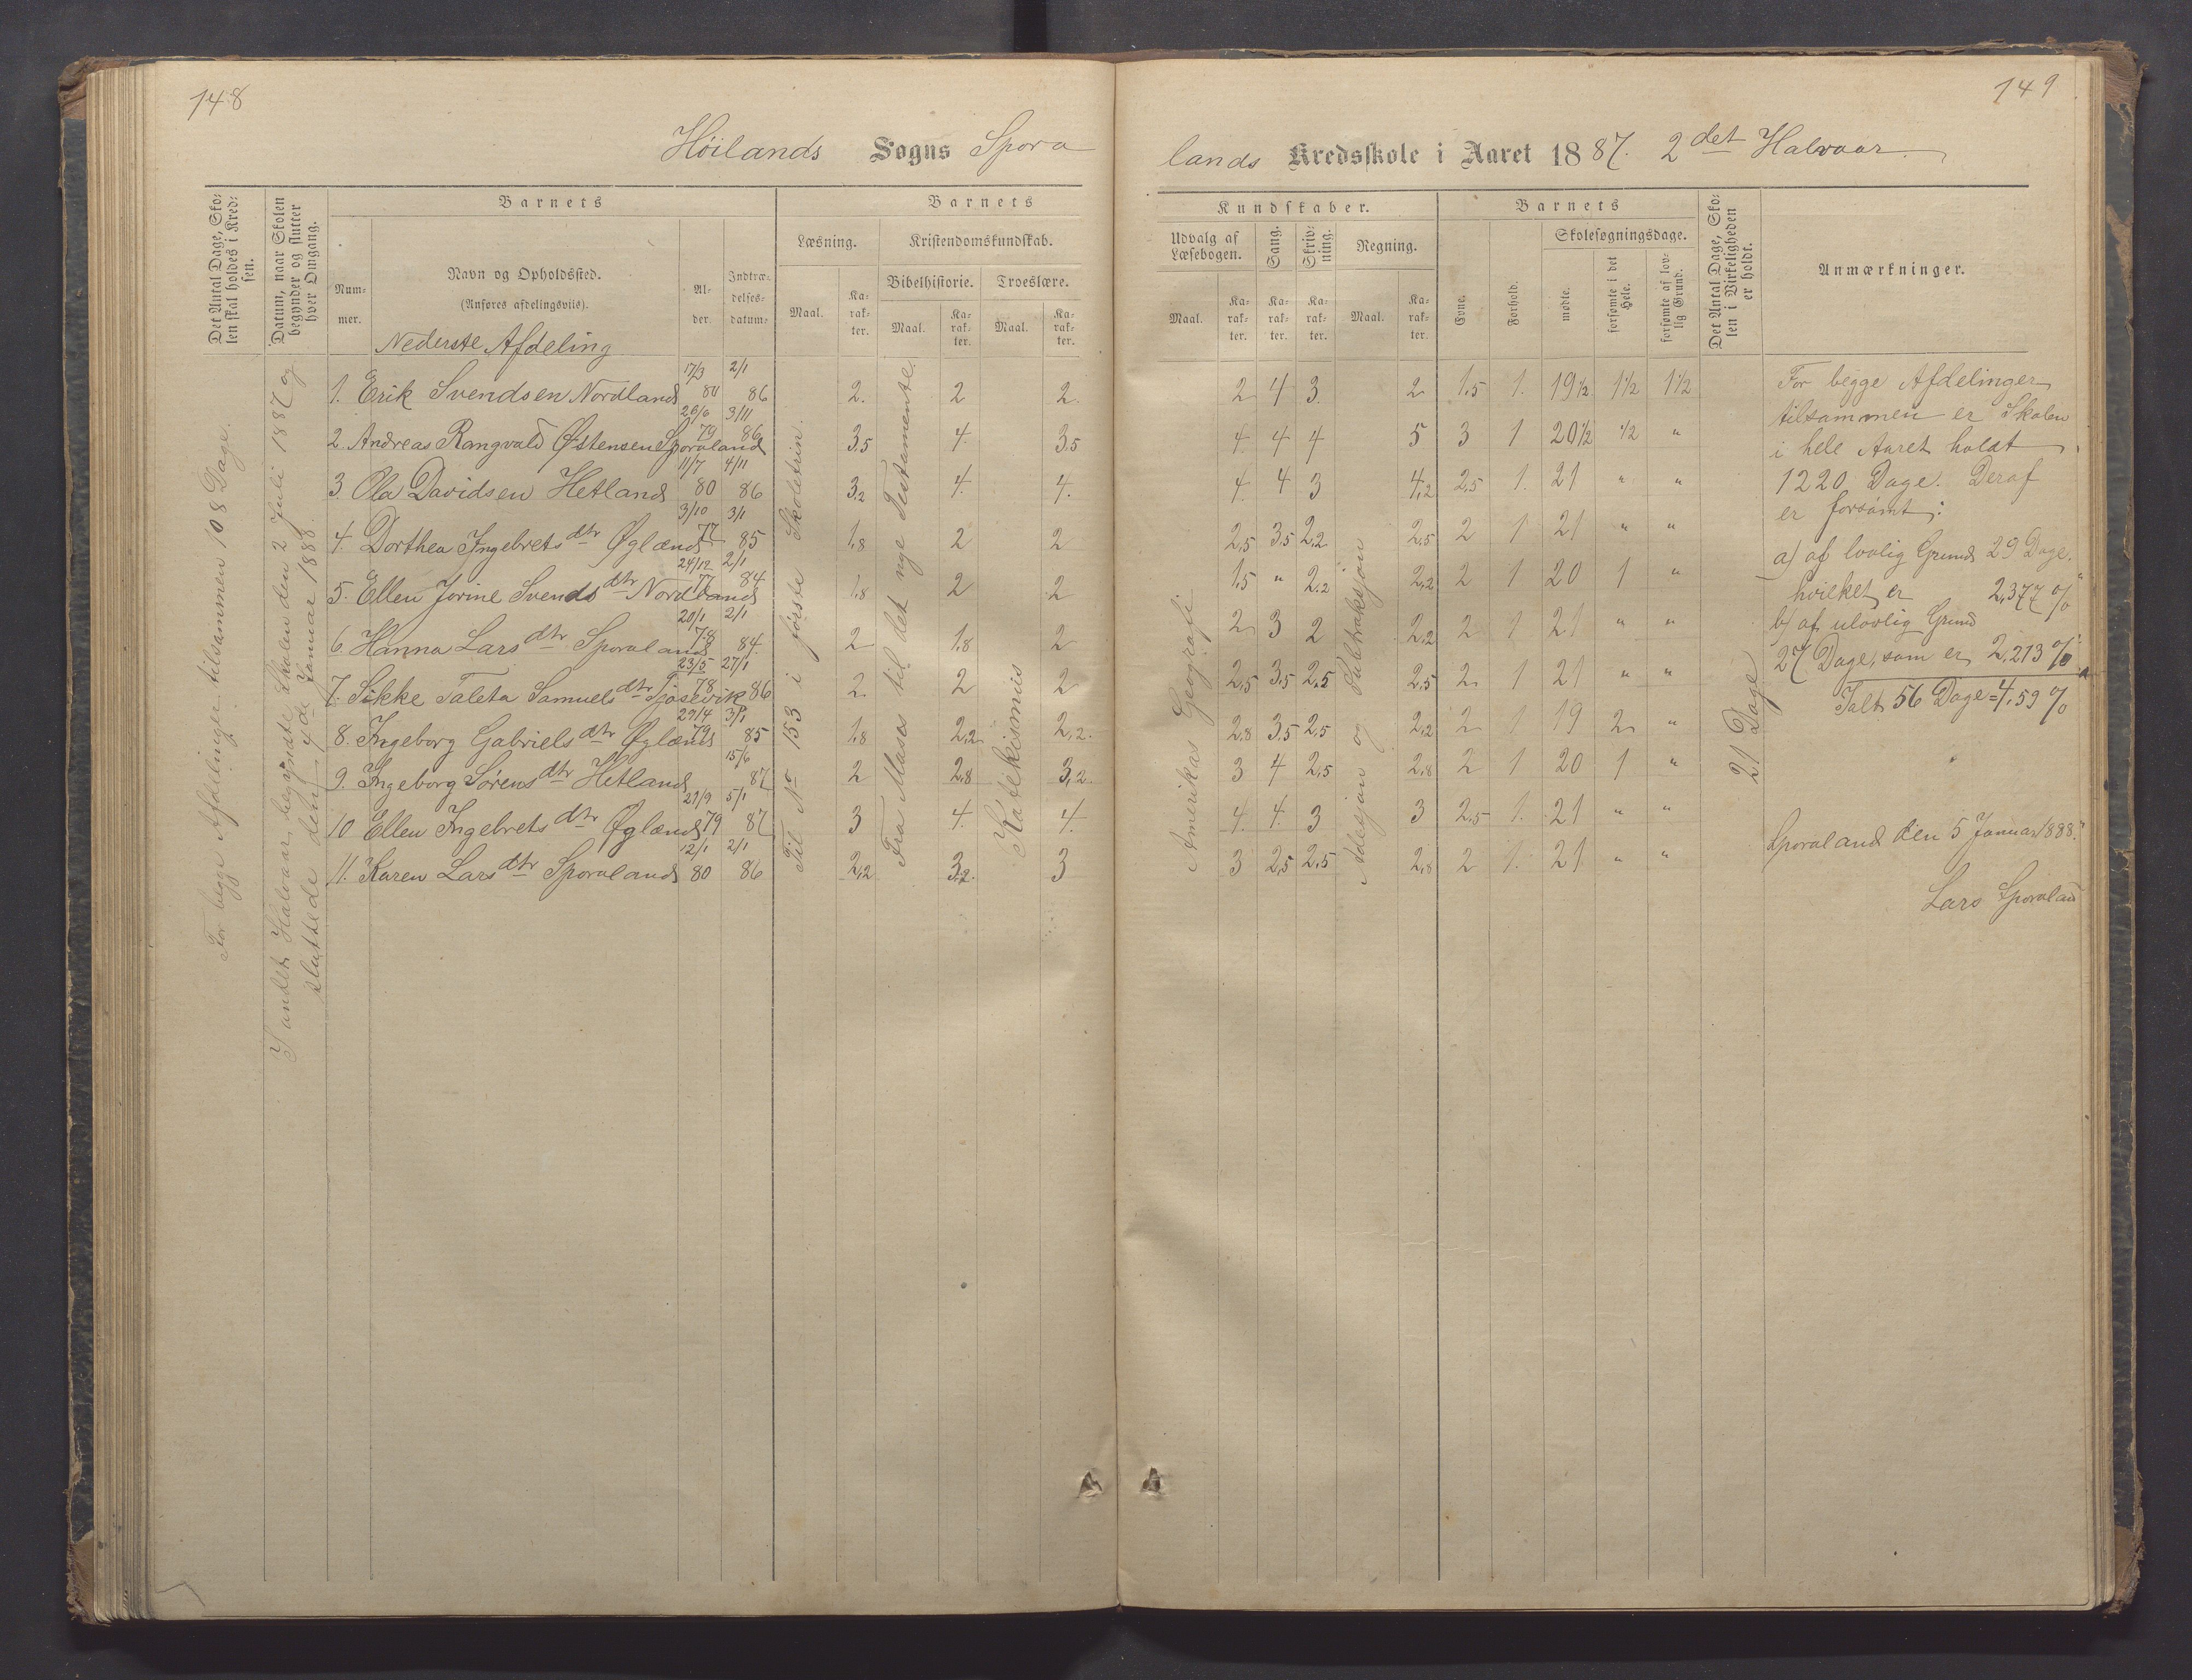 148
Höilands Sogns Spora
Det Antal Dage, Skolen skal holdes i Kredsen.
Datum, naar Skolen begynder og slutter hver Omgang.
Barnets
Nummer.
Navn og Opholdssted.
(Anføres afdelingsviis).
Alder.
Indtrædelsesdatum.
Barnets
Læsning.
Kristendomskundskab.
Maal.
Karakter.
Bibelhistorie.
Troeslære.
Maal.
Karakter.
Maal.
Karakter.
For begge Afdelinger tilsammen 108 Dage.
I andet Halvaar begyndte Skolen den 2 Juli 1887 og
sluttede den 4de Januar 1888.
Til № 153 i förste Skoletrin.
Fra Moses til det nye Testamente.
Katekismus
Nederste Afdeling
1. Erik Svendsen Nordland 17/3 80 2/1 86 2. 2 2.
2. Andreas Rangvald Østensen Sporaland 26/6 79 3/11 86 3,5 4. 3,5
3. Ola Davidsen Hetland 11/7 80 4/11 86 3,2 4. 4.
4. Dorthea Ingebretsdtr Øglænd 3/10 77 3/1 85 1,8 2 2
5. Ellen Jorine Svendsdtr Nordland 24/12 77 2/1 84 1,8 2 2
6. Hanna Larsdtr Sporaland 20/1 78 2/1 84. 2 1,8 2
7. Sikke Taleta Samuelsdtr Tjösevik 23/5 78 27/1 86 2. 2 2
8. Ingeborg Gabrielsdtr Øglænd 29/4 79 3/1 85 1,8 2,2 2,2.
9. Ingeborg Sörensdtr Hetland 15/6 87 2 2,8 3,2.
10 Ellen Ingebretsdtr Øglænd 29/9 79 5/1 87 3 4. 4.
11. Karen Larsdtr Sporaland 12/1 80 2/1 86 2,2 3,2. 3
149
lands Kredsskole i Aaret 1887. 2det Halvaar.
Kundskaber.
Udvalg af Læsebogen.
Sang.
Skrivning.
Regning.
Maal.
Karakter.
Karakter.
Karakter.
Maal.
Karakter.
Barnets
Evne.
Forhold.
Skolesøgningsdage.
mødte.
forsømte i det Hele.
forsømte af lovlig Grund.
Det Antal Dage, Skolen i Virkeligheden er holdt.
Anmærkninger.
Amerikas Geografi
Adesjon og Subtraksjon
21 Dage
2 4 3. 2 1,5 1. 19½ 1½ 1½
4. 4 4 5 3 1 20½ ½ "
4. 4 3 4,2 2,5 1. 21 " "
2,5 3,5 2,2 2,5 2 1 21 " "
1,5 " 2,2 2,2 2 1 20 1 "
2 3 2 2,2 2 1 21 " "
2,5 3,5 2,5 2,5 2 1 21 " "
2,8 3,5 2,5 2,2 2 1 19 2 "
3 4 2,5 2,8 2 1 20 1 "
4. 4. 3 3 2,5 1. 21 " "
3 2,5 2,5 2,8 2 1. 21 " "
For begge Afdelinger
tilsammen er Skolen
i hele Aaret holdt
1220 Dage. Deraf
er forsömt:
a) af lovlig Grund 29 Dage.
hvilket er 2,377 %
b) af ulovlig Grund
27 Dage, som er 2,213 %
Ialt 56 Dage = 4,59 %
Sporaland den 5 Januar 1888.
Lars Sporaland